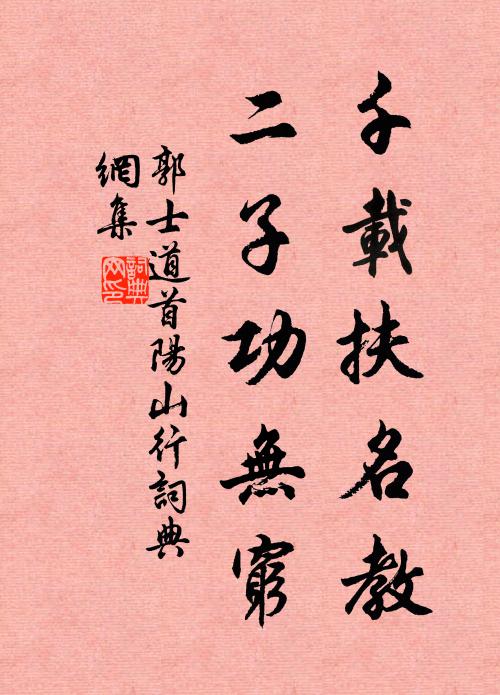 千載扶名教
二子功無窮
郭士道首陽山行詞典
網集
詞典
网印